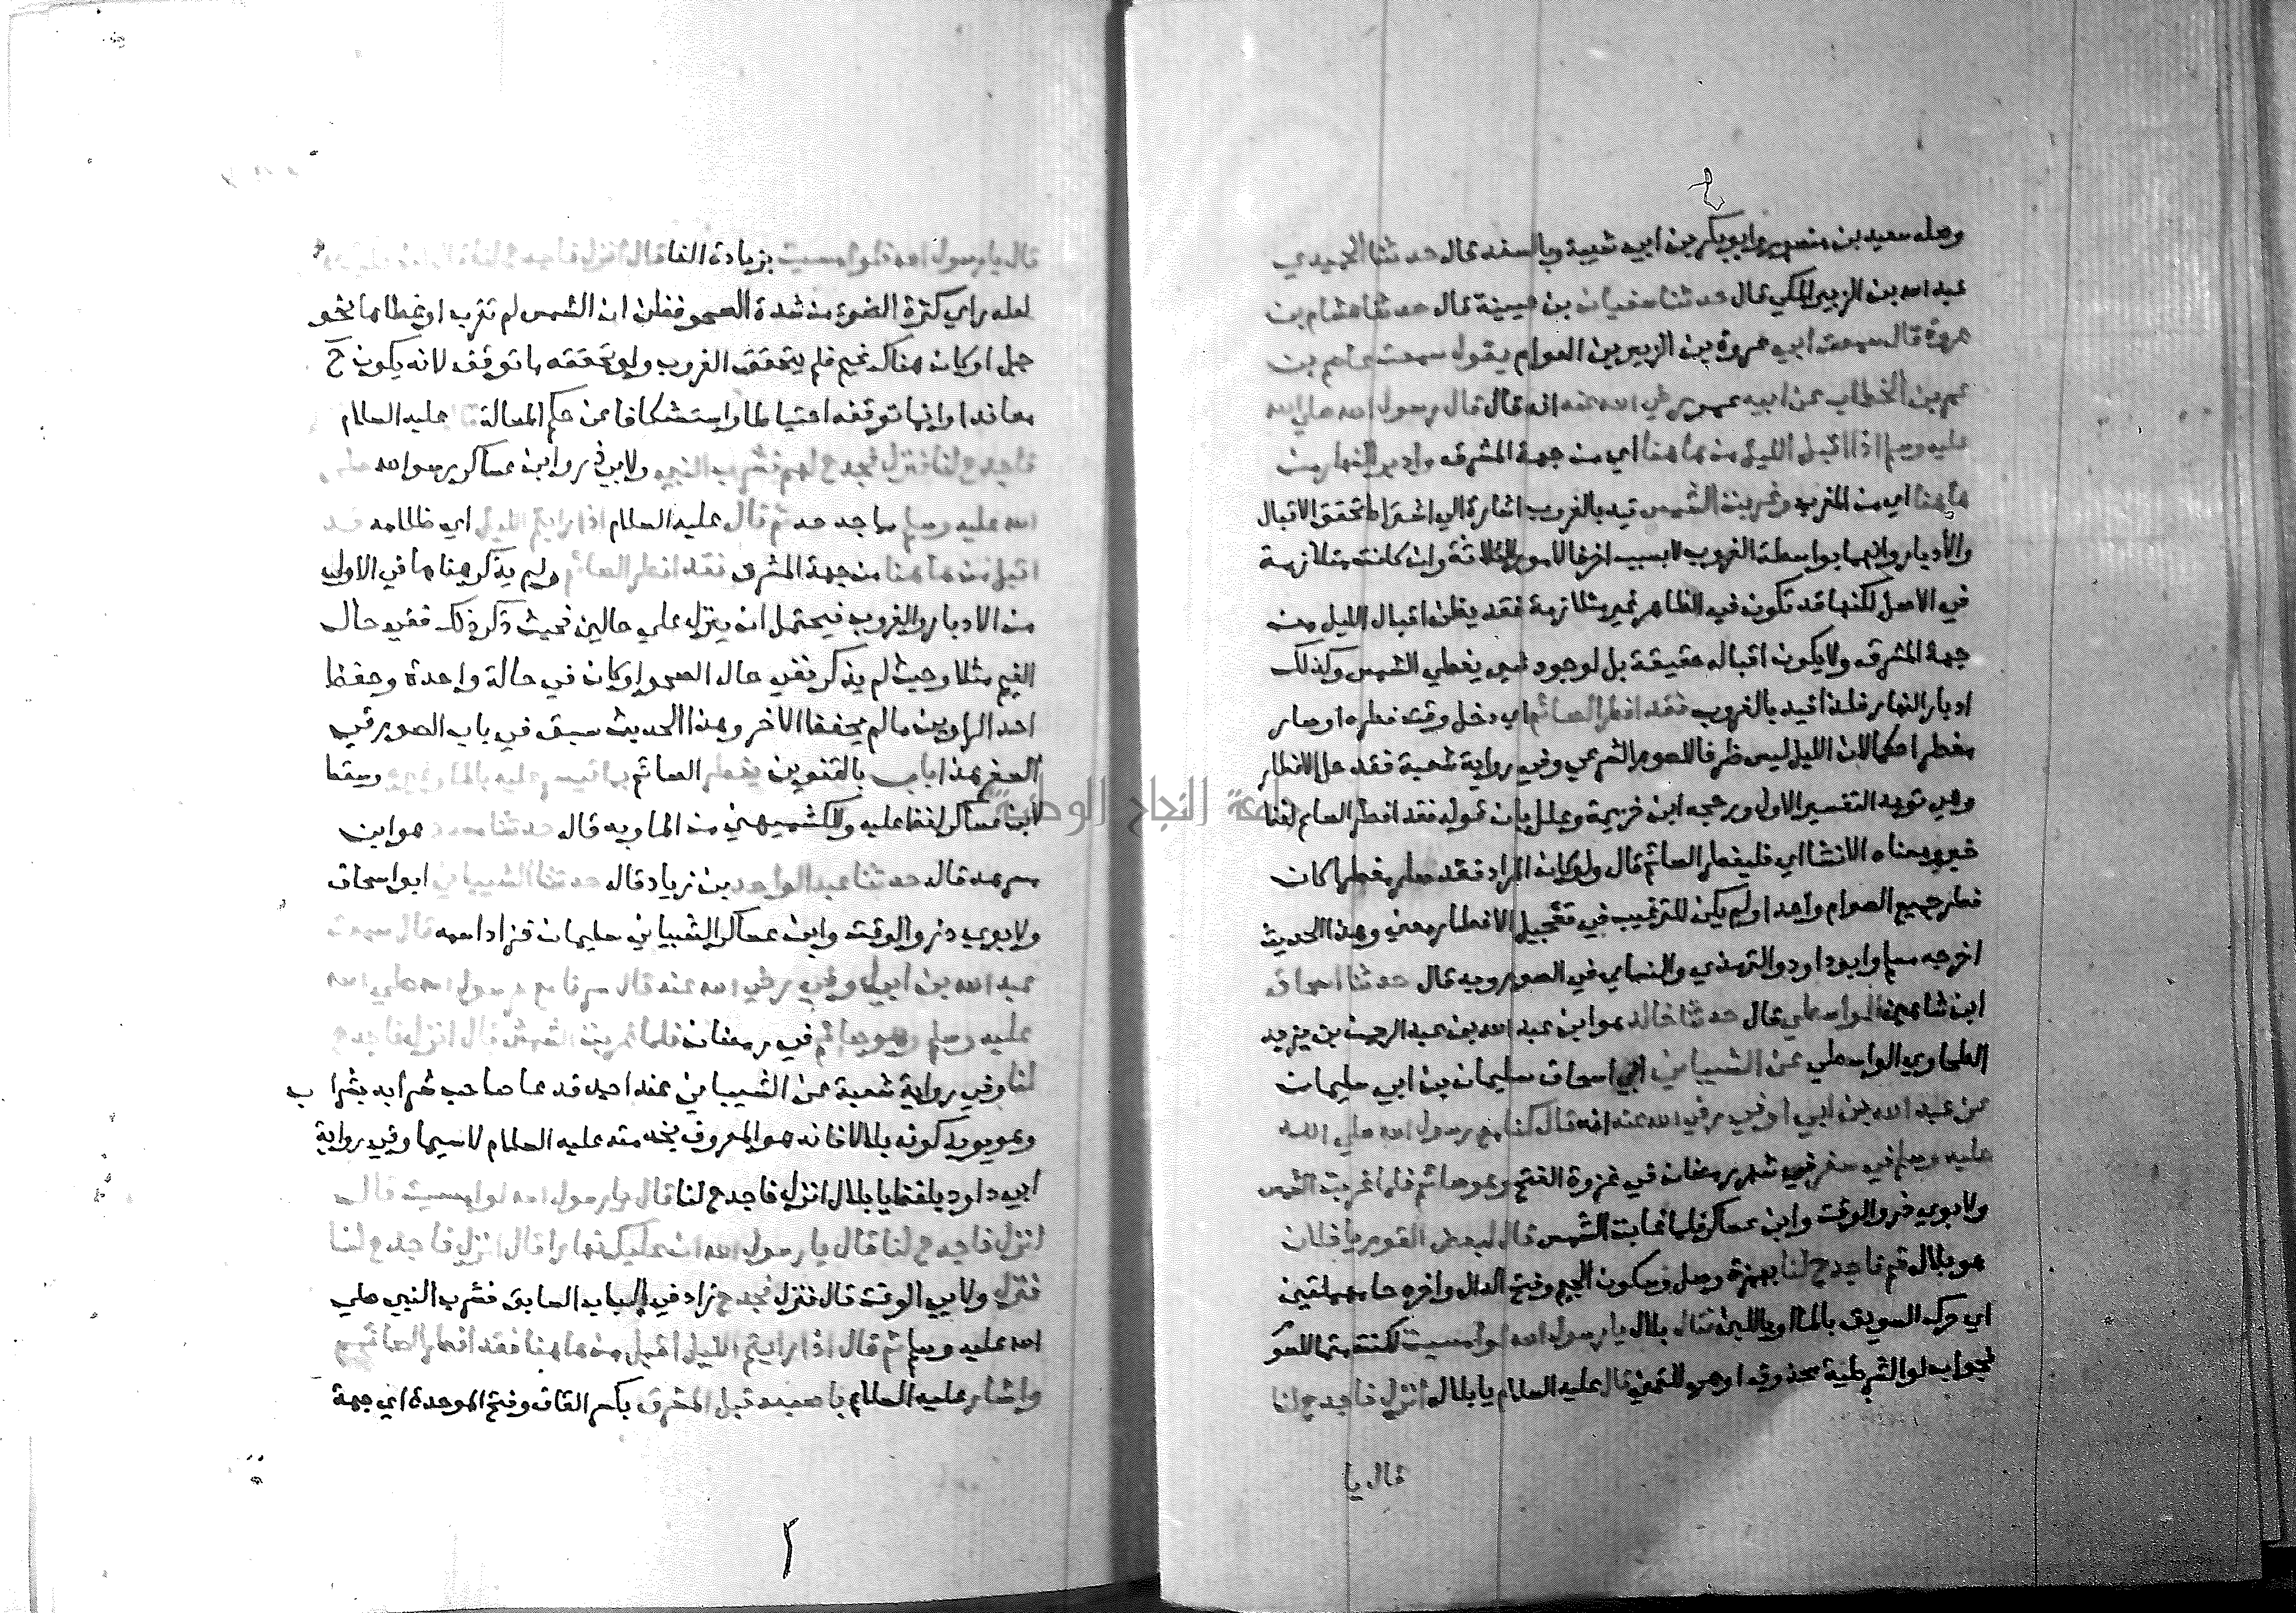 وصله سعيد بن منصور وابو بكر بن ابي شيبة وبالسند قال حدثنا الحميدي
عبد الله بن الزبير المكي قال حدثنا سفيان بن عيينة قال حدثنا هشام بن
عروة قال سمعت ابي عروة بن الزبير بن العوام يقول سمعت عاصم بن
عمر بن الخطاب عن ابيه عمر رضي الله عنه انه قال قال رسول الله صلي الله
عليه وسلم اذا اقبل الليل من هاهنا اي من جهة المشرق وادبر النهار من
هاهنا اي من المغرب وغربت الشمس قيد بالغروب اشارة الي اشتراط تحقق الاقبال
والادبار وانهما بواسطة الغروب لا بسبب اخر فالامور الثلاثة وان كانت متلازمة
في الاصل لكنها قد تكون في الظاهر غير متلازمة فقد يظن اقبال الليل من
جهة المشرق ولا يكون اقباله حقيقة بل لوجود شي يغطي الشمس وكذلك
ادبار النهار فلذا قيد بالغروب فقد افطر الصائم اي دخل وقت فطره او صار
مفطرا حكما لان الليل ليس ظرفا للصوم الشرعي وفي رواية شعبة فقد حل الافطار
وهي تويد التفسير الاول ورجحه ابن خزيمة وعلل بان قوله فقد افطر الصايم لفظ
خبر ومعناه الانشا اي فليفطر الصائم قال ولو كان المراد فقد صار مفطرا كان
فطر جميع الصوام واحدا ولم يكن للترغيب في تعجيل الافطار معني وهذا الحديث
اخرجه مسلم وابو داود والترمذي والنساي في الصوم وبه قال حدثنا اسحاق
ابن شاهين الواسطي قال حدثنا خالد هو ابن عبد الله بن عبد الرحمن بن يزيد
الطحاوي الواسطي عن الشيباني ابي اسحاق سليمان بن ابي سليمان
عن عبد الله بن ابي اوفي رضي الله عنه انه قال كنا مع رسول الله صلي الله
عليه وسلم في سفر في شهر رمضان في غزوة الفتح وهو صائم فلما غربت الشمس
ولابوي ذر والوقت وابن عساكر فلما غابت الشمس قال لبعض القوم يا فلان
هو بلال قم فاجدح لنا بهمزة وصل وسكون الجيم وفتح الدال واخره حا مهملتين
اي حرك السويق بالما او باللبن فقال بلال يا رسول الله لو امسيت لكنت متما للصو
فجواب لو الشرطية محذوف او هي للتمني قال عليه السلام يا بلال انزل فاجدح لنا
قال يا
قال يا رسول الله فلو امسيت بزيادة الفا قال
لعله راي كثرة الضوء من شدة الصحو فظن ان الشمس لم تغرب او غطاها نحو
جبل او كان هناك غيم فلم يتحقق الغروب ولو تحققه ما توقف لانه يكون ح
معاندا وانما توقفه احتياطا واستكشافا عن حكم المسالة عليه السلام
فاجدح لنا فنزل فجدح لهم فشرب النبي ولابي ذر وابن عساكر رسول الله
الله عليه وسلم ما جدحه ثم قال عليه السلام اذا رايتم الليل اي ظلامه قد
اقبل من هاهنا من جهة المشرق فقد افطر الصائم ولم يذكر هنا ما في الاول
من الادبار والغروب فيحتمل ان ينزل علي حالين فحيث ذكر ذلك ففي حال
الغيم مثلا وحيث لم يذكر ففي حال الصحو او كان في حالة واحدة وحفظ
احد الراويين ما لم يحفظ الاخر وهذا الحديث سبق في باب الصوم في
السفر هذا باب بالتنوين يفطر الصائم وسقط
لابن عساكر لفظ عليه وللكشميهني من الما وبه قال حدثنا مسدد هو ابن
مسرهد قال حدثنا عبد الواحد بن زياد قال حدثنا الشيباني ابو اسحاق
ولابوي ذر والوقت وابن عساكر الشيباني سليمان فزاد اسمه قال سمعت
عبد الله بن ابي اوفي رضي الله عنه قال سرنا مع رسول الله صلي الله
عليه وسلم وهو صائم في رمضان فلما غربت الشمس قال انزل فاجدح
لنا وفي رواية شعبة عن الشيباني عند احمد قد عا صاحب شرابه بشراب
وهو يويد كونه بلالا فانه هو المعروف بخدمته عليه السلام لا سيما وفي رواية
ابي داود بلفظ يا بلال انزل فاجدح لنا قال يا رسول الله لو امسيت قال
انزل فاجدح لنا قال يا رسول الله ان عليك نهارا قال انزل فاجدح لنا
فنزل ولابي الوقت قال فنزل فجدح زاد في الباب السابق فشرب النبي صلي
الله عليه وسلم ثم قال اذا رايتم الليل اقبل من هاهنا فقد افطر الصائم
واشار عليه السلام باصبعه قبل المشرق بكسر القاف وفتح الموحدة اي جهة
جامعة النجاح الوطنية